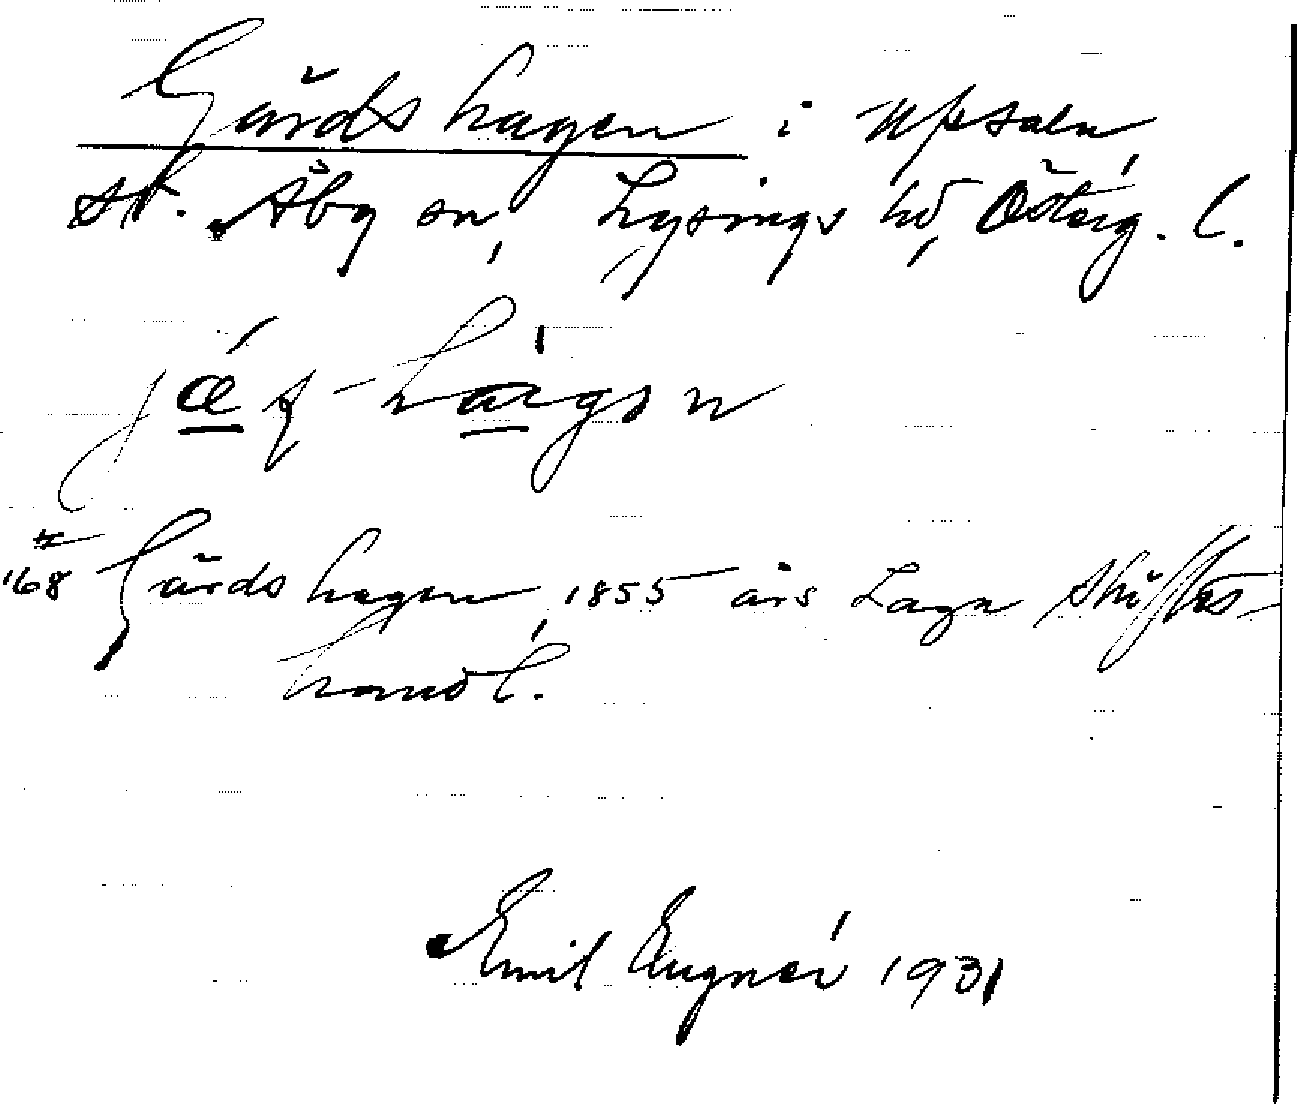 Gårdshagen i Upsala
st. Åby sn, Lysings hd, Österg. l.
jæʒ-hàgɘn
#
'68 Gårdshagen, 1855 års Laga Skiftes-
handl.
Emil Eugner 1931